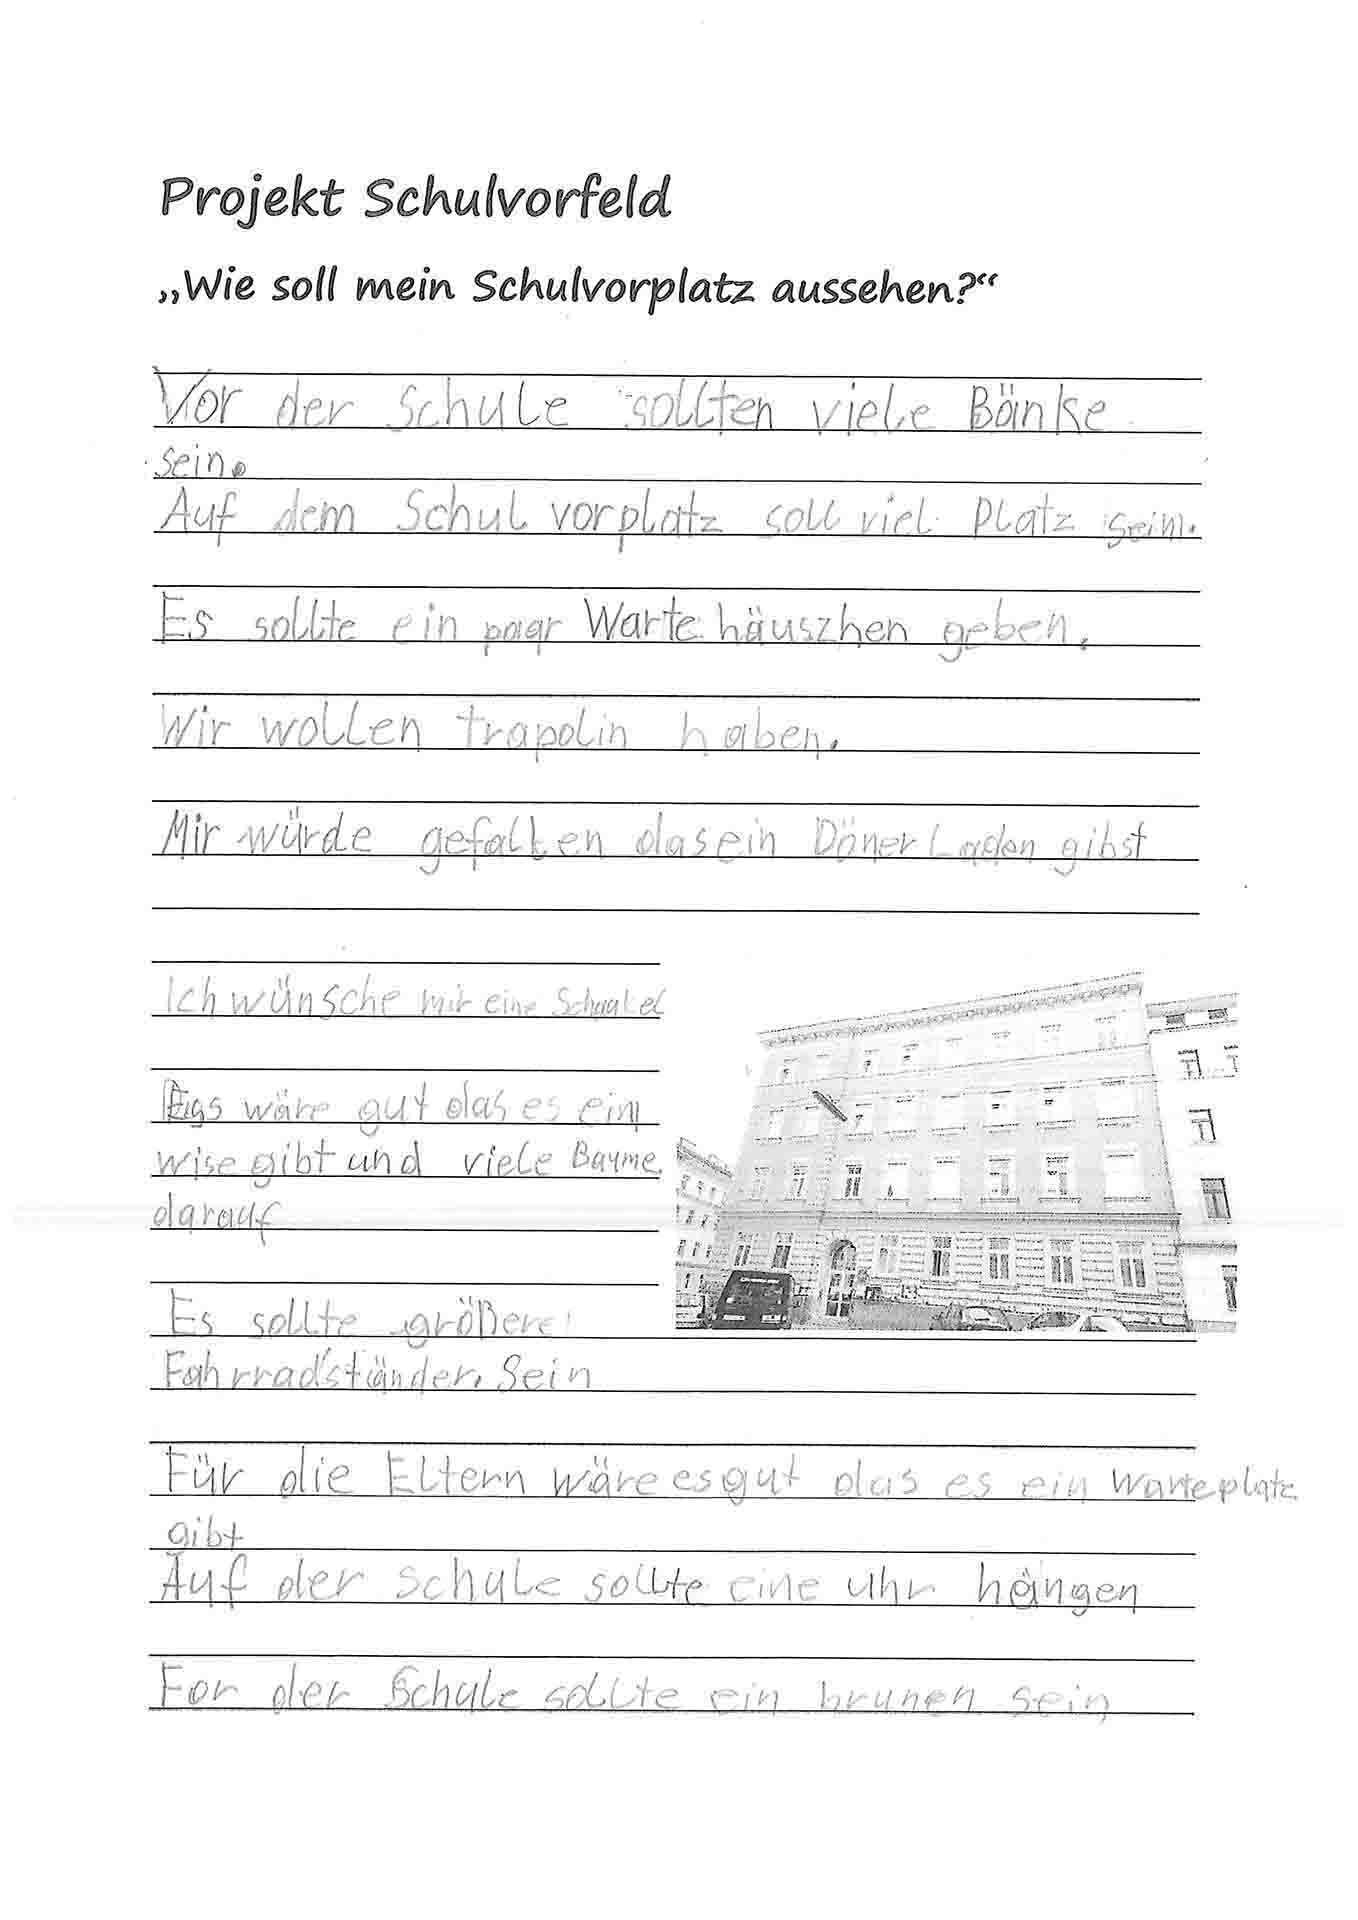 Projekt Schulvorfeld
„Wie soll mein Schulvorplatz aussehen?“
Vor der Schule sollten viele Bänke
sein.
Auf dem Schul vorplatz soll viel Platz sein.
Es sollte ein paar Warte häuszhen geben.
Wir wollen trapolin haben.
Mir würde gefallen das ein Döner Laden gibst
Ich wünsche mir eine Schaukel
Es wäre gut das es ein
wise gibt und viele Bäume
darauf
Es sollte größere
Fahrradständer. Sein
Für die Eltern wäre es gut das es ein Warteplatz
gibt
Auf der Schule sollte eine uhr hängen
For der Schule sollte ein brunen sein